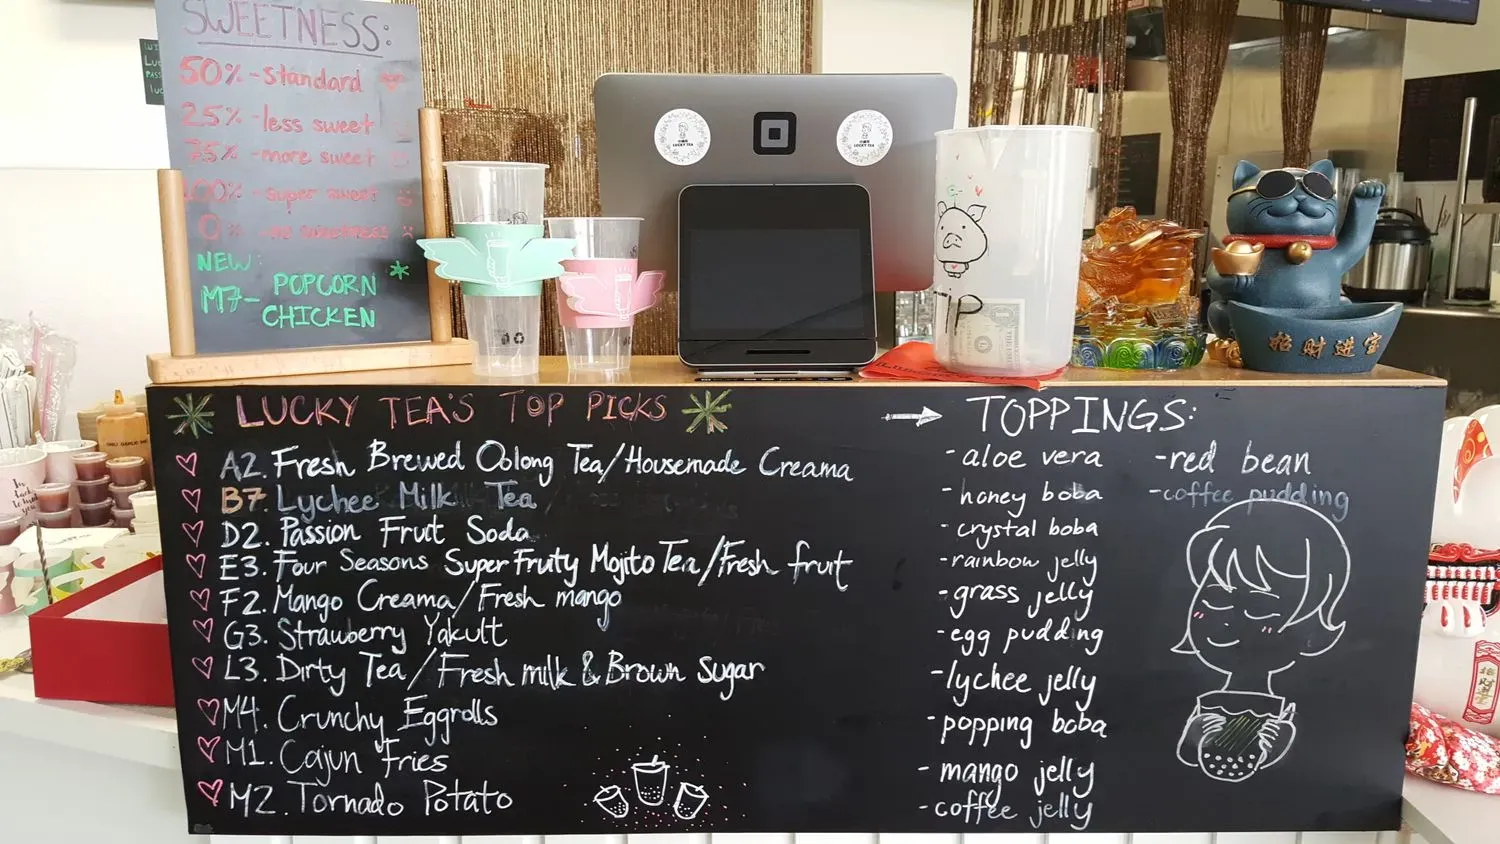 SWEETNESS:
50% - standard
25% - less sweet
75% - more sweet
100% - super sweet
0% - no sweetness
NEW:
M7 - POPCORN
CHICKEN
LUCKY TEA
LUCKY TEA
TIP
招财进宝
LUCKY TEA'S TOP PICKS
A2. Fresh Brewed Oolong Tea/Housemade Creama
B7. Lychee Milk Tea
D2. Passion Fruit Soda
E3. Four Seasons Super Fruity Mojito Tea/Fresh fruit
F2. Mango Creama/Fresh mango
G3. Strawberry Yakult
L3. Dirty Tea/Fresh milk & Brown Sugar
M4. Crunchy Eggrolls
M1. Cajun Fries
M2. Tornado Potato
TOPPINGS:
- aloe vera
- honey boba
- crystal boba
- rainbow jelly
- grass jelly
- egg pudding
- lychee jelly
- popping boba
- mango jelly
- coffee jelly
- red bean
- coffee pudding